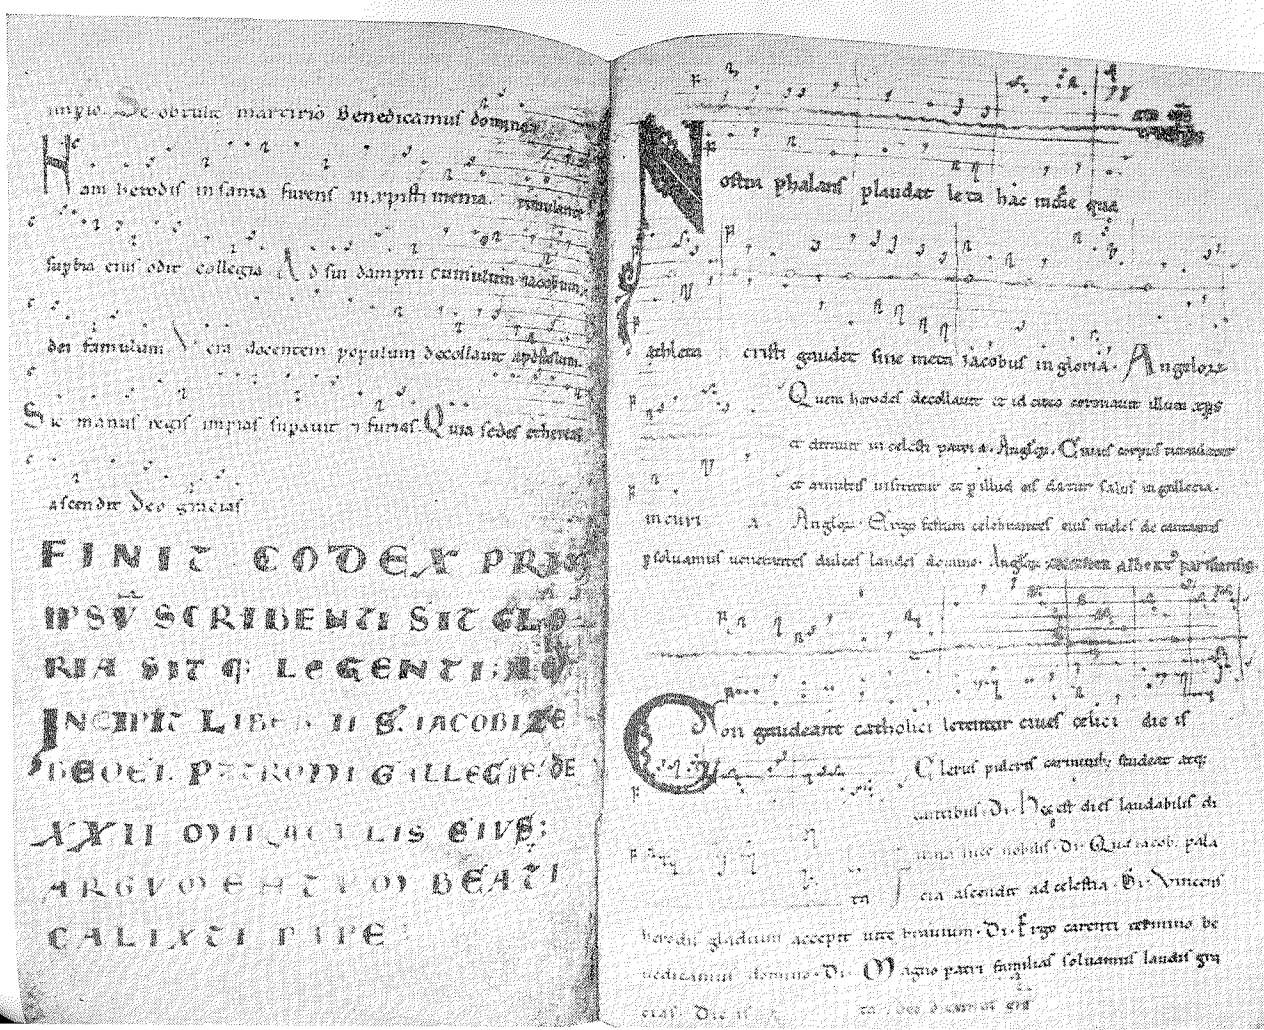 impio. Se obtulit martirio Benedicamus domino
Ham herodis insania furens in xpisti menia.
supbia eius odit collegia Ad sui dampni cumulum iacobum
dei famulum Vera docentem populum decollauit apostolum.
Sic manus regis impias supauit 7 furias. Quia sedes ethereas
ascendit Deo gracias
FINIT CODEX PRIM
IPSV SCRIBENTI SIT GLO
RIA SIT Q; LEGENTI;
INCIPIT LIBER II S. IACOBI ZE
BEDEI. PATRONI GALLECIE. DE
XXII MIRACULIS EIVS;
ARGVMENTVM BEATI
CALIXTI PAPE
Nostra phalans plaudat leta hac indie qua
athleta cristi gaudet sine meta iacobus in gloria. Angelor
Quem herodes decollauit et id circo coronauit illum xps
et ditauit in celesti patria. Angelor. Cuius corpus tumulatur
et a multis uisitatur et p illud eis datur salus in gallecia.
in curi a Angelor. Ergo festum celebrantes eius melos decantantes
psoluamus uenerantes dulces laudes domino. Angelor
Con gaudeant catholici letentur ciues celici die is
Clerus pulcris carminib; studeat atq;
cantibus. Di. Hec est dies laudabilis di
uina luce nobilis. Di. Qua iacob. pala
cia ascendit ad celestia. Di. Vincens
herodis gladium accepit uite brauium. Di. Ergo carenti termino be
nedicamus domino. Di. Magno patri familias soluamus laudis gra
cias. Die is ta